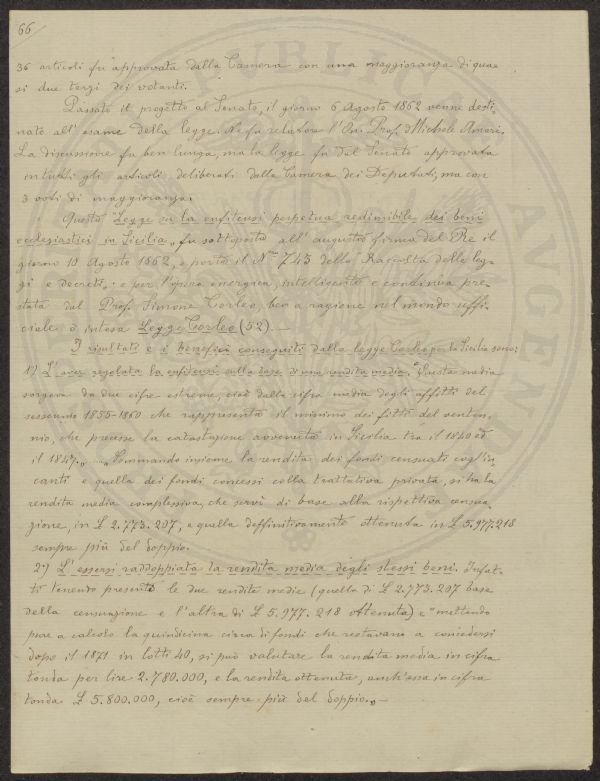 66
36 articoli fu approvata dalla Camera con una maggioranza di qua=
si due terzi dei votanti.
Passato il progetto al Senato, il giorno 6 Agosto 1862 venne desti=
nato all'esame della legge. Ne fu relatore l'On. Prof. Michele Amari.
La discussione fu ben lunga, ma la legge fu dal Senato approvata
in tutti gli articoli deliberati dalla Camera dei Deputati, ma con
3 voti di maggioranza.
Questa Legge su la enfiteusi perpetua redimibile dei beni
ecclesiastici in Sicilia, fu sottoposta all'augusta firma del Re il
giorno 10 Agosto 1862, e porta il N.° 743 della Raccolta delle leg=
gi e decreti; e per l'opera energica, intelligente e continua pre=
stata dal Prof. Simone Corleo, ben a ragione nel mondo uffi=
ciale è intesa Legge Corleo (52). —
I risultati e i benefici conseguiti dalla legge Corleo per la Sicilia sono:
1) L'aver regolata la enfiteusi sulla base di una rendita media. "Questa media
sorgeva da due cifre estreme, cioè dalla cifra media degli affitti del
sessennio 1855-1860 che rappresenta il minimo dei fitti del venten=
nio, che precesse la catastazione avvenuta in Sicilia tra il 1840 ed
il 1847.„ — „Sommando insieme la rendita dei fondi censuati cogl'in=
canti e quella dei fondi concessi colla trattativa privata, si ha la
rendita media complessiva, che servì di base alla rispettiva censua=
zione, in £ 2.773.207, e quella deffinitivamente ottenuta in £ 5.977.218
sempre più del doppio.
2°) L'essersi raddoppiata la rendita media degli stessi beni. Infat=
ti tenendo presente le due rendite medie (quella di £ 2.773.207 base
della censuazione e l'altra di £ 5.977.218 ottenuta) e "mettendo
pure a calcolo la quindicina circa di fondi che restavano a concedersi
dopo il 1871 in lotti 40, si può valutare la rendita media in cifra
tonda per lire 2.780.000, e la rendita ottenuta, anch'essa in cifra
tonda £ 5.800.000, cioè sempre più del doppio.„ —